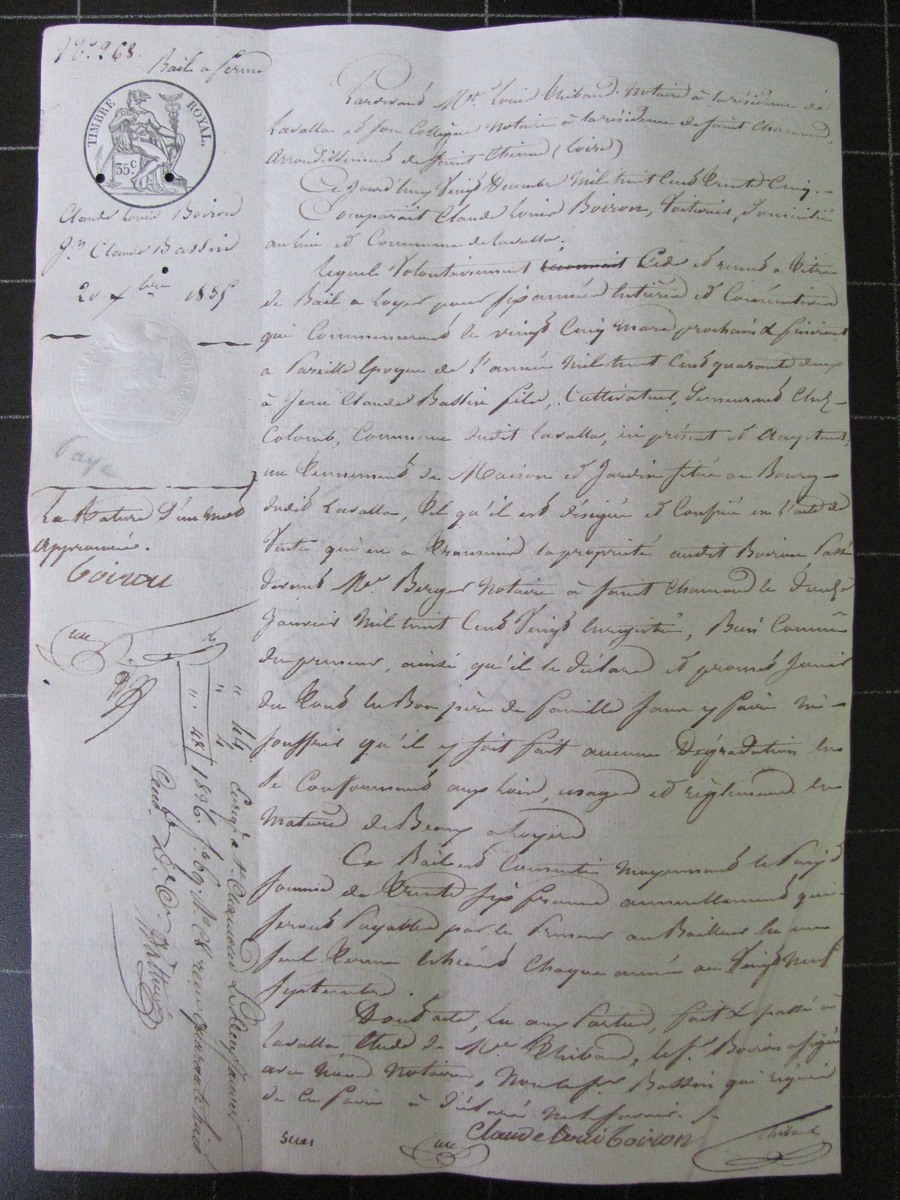 N° 268.
Bail a ferme
TIMBRE ROYAL.
35 C
Claude Louis Boiron
Jn Claude Bassin
20 Xbre 1835
Paye
La Rature d'un mot
Approuvée.
Boiron
Pardevant Mre Louis Thibaud Notaire à la résidence de
Lavalla et son Collègue Notaire à la résidence de Saint Chamond,
Arrondissement de Saint Etienne (Loire)
Ce Jourd'huy Vingt Décembre Mil huit Cent Trente Cinq.
Comparait Claude Louis Boiron, domicilié
au lieu et Commune de Lavalla.
Lequel Volontairement Cède et remet a Titre
de Bail a Loyer pour six années Entières et Consécutives
qui Commenceront le vingt Cinq Mars prochain & finiront
a Pareille Epoque de l'année Mil huit Cent quarante deux
à Jean Claude Bassin fils, Cultivateur, Demeurant Chez
Colomb, Commune dudit Lavalla, ici présent et Acceptant,
un Tennement de Maison et Jardin situé au Bourg
dudit Lavalla, Tel qu'il est désigné et Confiné en l'acte de
Vente qui en a Transmis la propriété audit Boiron Passé
devant Mre Berger Notaire à Saint Chamond le
Janvier Mil huit Cent Vingt Enregistré, Bien Connu
du preneur, ainsi qu'il le déclare et promet Jouir
du Tout en Bon père de famille sans y faire ni
souffrir qu'il y soit fait aucune Dégradation en
se Conformant aux Loix, usages et règlements en
Matière de Beaux a Loyer
Ce Bail est Consenti moyennant le Prix &
somme de Trente six francs annuellement qui
seront Payables par le Preneur au Bailleur en un
seul Terme Echéant Chaque année au Vingt Neuf
Septembre.
Dont acte, Lu aux Parties, fait & passé à
Lavalla Etude de Mre Thibaud, le Sr Boiron a signé
avec Nous Notaires, Non le Sr Bassin qui requis
de ce faire a déclaré ne le savoir.
Claude Loui Boiron
Thibaud